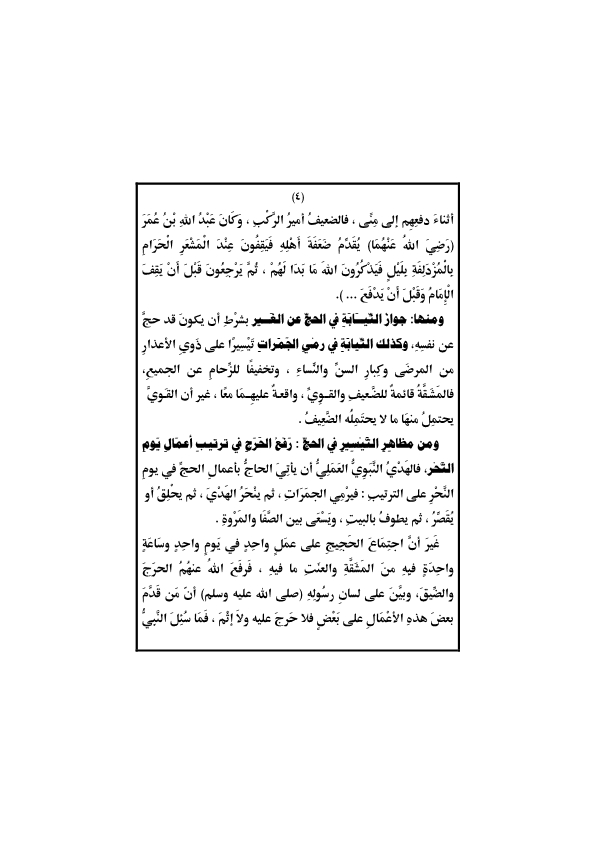 (٤)
أثناءَ دفعِهِم إلى مِنًى ، فالضعيفُ أميرُ الرَّكْبِ ، وَكَانَ عَبْدُ اللهِ بْنُ عُمَرَ
(رَضِيَ اللهُ عَنْهُمَا) يُقَدِّمُ ضَعَفَةَ أَهْلِهِ فَيَقِفُونَ عِنْدَ الْمَشْعَرِ الْحَرَامِ
بِالْمُزْدَلِفَةِ بِلَيْلٍ فَيَذْكُرُونَ اللهَ مَا بَدَا لَهُمْ ، ثُمَّ يَرْجِعُونَ قَبْلَ أَنْ يَقِفَ
الْإِمَامُ وَقَبْلَ أَنْ يَدْفَعَ ... ).
ومنها: جوازُ النِّيَـابَةِ في الحجِّ عن الغَـيرِ بشرْطِ أن يكونَ قد حجَّ
عن نفسِهِ، وكذلك النِّيابَةِ في رمْيِ الجَمَراتِ تَيْسِيرًا على ذَوِي الأعذارِ
من المرضَى وكِبارِ السنِّ والنِّساءِ ، وتخفيفًا للزِّحامِ عن الجميعِ،
فالمَشَقَّةُ قائمةٌ للضَّعيفِ والقـويِّ ، واقعـةٌ عليهِـمَا معًا ، غير أن القـويَّ
يحتمِلُ منهَا ما لا يحتَمِلُه الضَّعِيفُ .
ومن مظاهِرِ التَّيسِيرِ في الحجِّ : رَفْعُ الحَرَجِ في ترتيبِ أعمَالِ يَومِ
النَّحْرِ، فالهَدْيُ النَّبَوِيُّ العَمَلِيُّ أن يأتِيَ الحاجُّ بأعمالِ الحجِّ في يومِ
النَّحْرِ على الترتيبِ : فيرْمِي الجمَرَاتِ ، ثم ينْحَرُ الهَدْيَ ، ثم يحْلِقُ أو
يُقَصِّرُ ، ثم يطوفُ بالبيتِ ، ويَسْعَى بين الصَّفَا والمَرْوةِ .
غَيرَ أنَّ اجتِمَاعَ الحَجِيجِ على عمَلٍ واحِدٍ في يَومٍ واحِدٍ وسَاعَةٍ
واحِدَةٍ فيهِ منَ المَشَقَّةِ والعنَتِ ما فيهِ ، فَرفَعَ اللهُ عنهُمُ الحرَجَ
والضِّيقَ، وبيَّنَ على لسانِ رسُولِهِ (صلى الله عليه وسلم) أنّ مَن قَدَّمَ
بعضَ هذهِ الأعْمَالِ على بَعْضٍ فلا حَرجَ عليه ولاَ إثْمَ ، فَمَا سُئِلَ النَّبيُّ